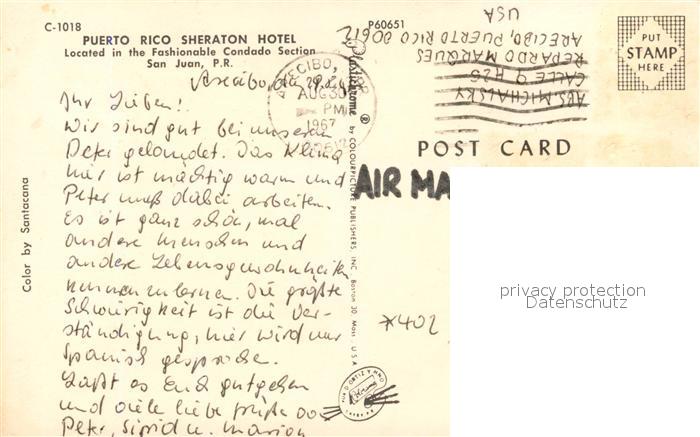 C-1018
PUERTO RICO SHERATON HOTEL
Located in the Fashionable Condado Section
San Juan, P.R.
Arecibo, den 29.8.67
Ihr Lieben!
Wir sind gut bei unserem
Peter gelandet. Das Klima
hier ist mächtig warm und
Peter muß dabei arbeiten.
Es ist ganz schön, mal
andere Menschen und
andere Lebensgewohnheiten
kennenzulernen. Die größte
Schwierigkeit ist die Ver-
ständigung, hier wird nur
Spanisch gesprochen.
Laßt es Euch gutgehen
und viele liebe Grüße von
Peter, Sigrid u. Marion
Color by Santacana
ARECIBO,
AUG 30
PM
1967
Plastichrome ® by COLOURPICTURE PUBLISHERS, INC. Boston 30, Mass., U.S.A.
P60651
ABS. MICHALSKY
CALLE 9 H28
REPARD MARQUES
ARECIBO, PUERTO RICO 00612
USA
PUT
STAMP
HERE
POST CARD
AIR MA
privacy protection
Datenschutz
*402